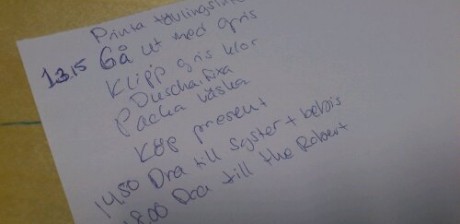 Printa tävlingsinfo
13.15 Gå ut med gris
Klipp gris klor
Duscha, fixa
Packa väska
Köp present
1450 Dra till syster + bebis
1800 Dra till the Robert